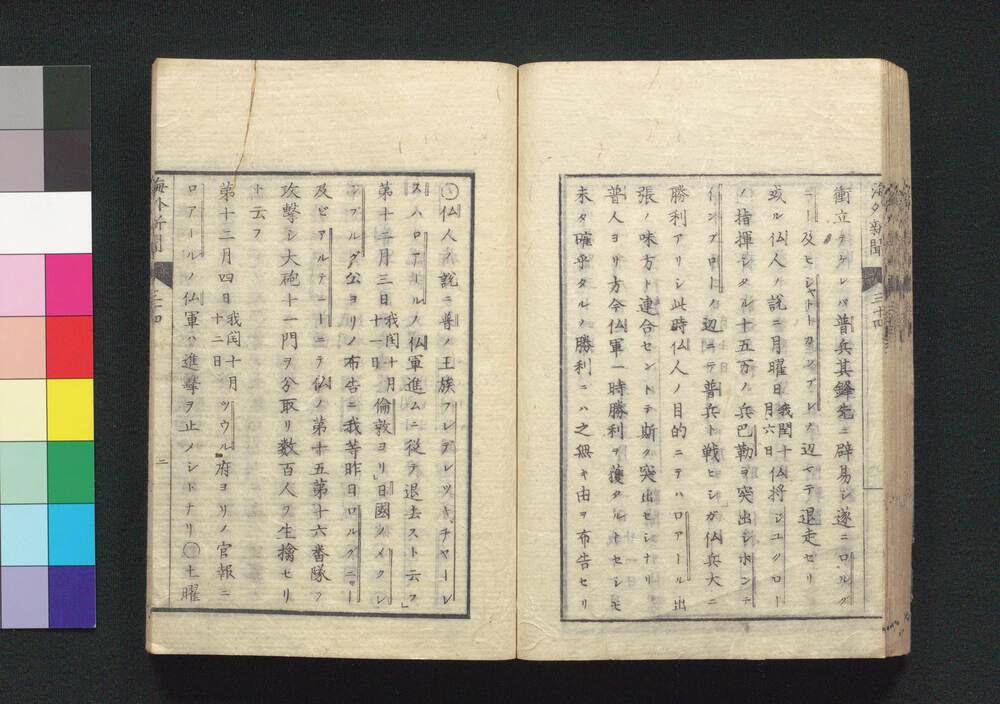 海外新聞 三十四
衝立テケレバ普兵其鋒先ニ辟易シ遂ニロルグ
ニー及ヒシャトーカンブレノ辺マテ退走セリ
或ル仏人ノ説ニ月曜日我閏十月六日仏将ジユクロー
ノ指揮シタル十五万ノ兵巴勒ヲ突出シボンテ
インブローノ辺ニテ普兵ト戦ヒシガ仏兵大ニ
勝利アリシ此時仏人ノ目的ニテハロアール出
張ノ味方ト連合セントテ斯ク突出セシナリ
普人ヨリ方今仏軍一時勝利ヲ獲タルトセシモ
未タ確乎タルノ勝利ニハ之無キ由ヲ布告セリ
○仏人ノ説ニ普ノ王族フレデレツキチヤーレ
スハロアールノ仏軍進ムニ従テ退去スト云フ」
第十二月三日我閏十月十一日倫敦ヨリ」日國ノメクレ
ンブルグ公ヨリノ布告ニ我等昨日ロルグニー
及ビアルテニーニテ仏ノ第十五第十六番隊ヲ
攻撃シ大砲十一門ヲ分取リ数百人ヲ生擒セリ
ト云フ
第十二月四日我閏十月十二日ツウル府ヨリノ官報ニ
ロアールノ仏軍ハ進撃ヲ止ノシトナリ○土曜
海外新聞 三十四 二